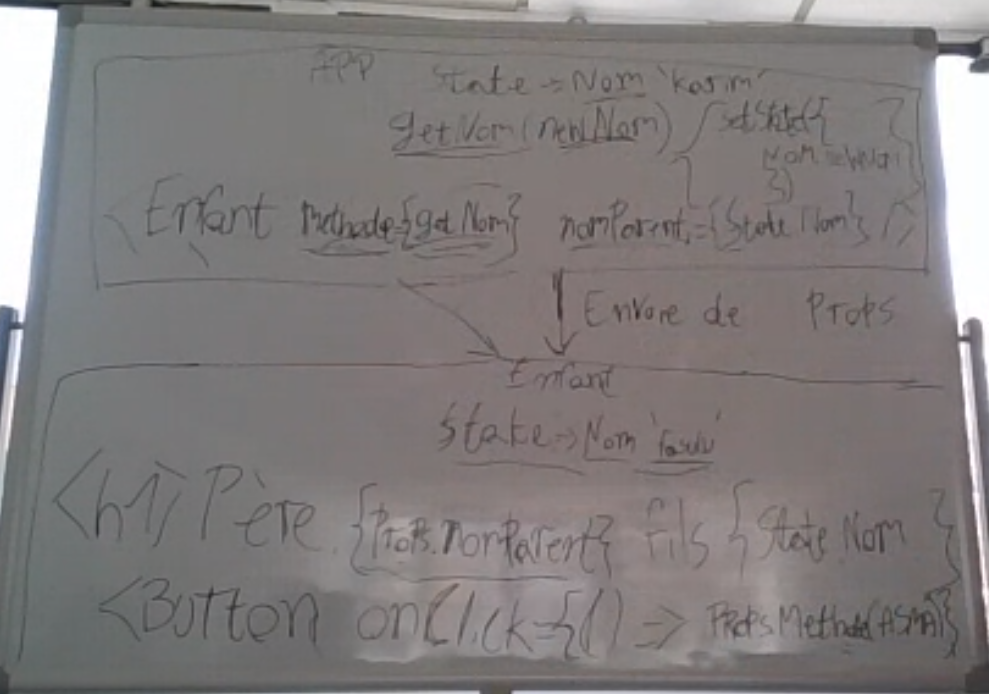 APP State → Nom 'Karim'
getNom(newNom) { setState({
Nom: newNom
})
}
<Enfant Methode={getNom} nomParent={State Nom} />
Envoie de Props
Enfant
State → Nom
<h1> Père {Props.nomParent} fils {State.Nom}
<Button onClick={() => Props.Methode(ASMA)}